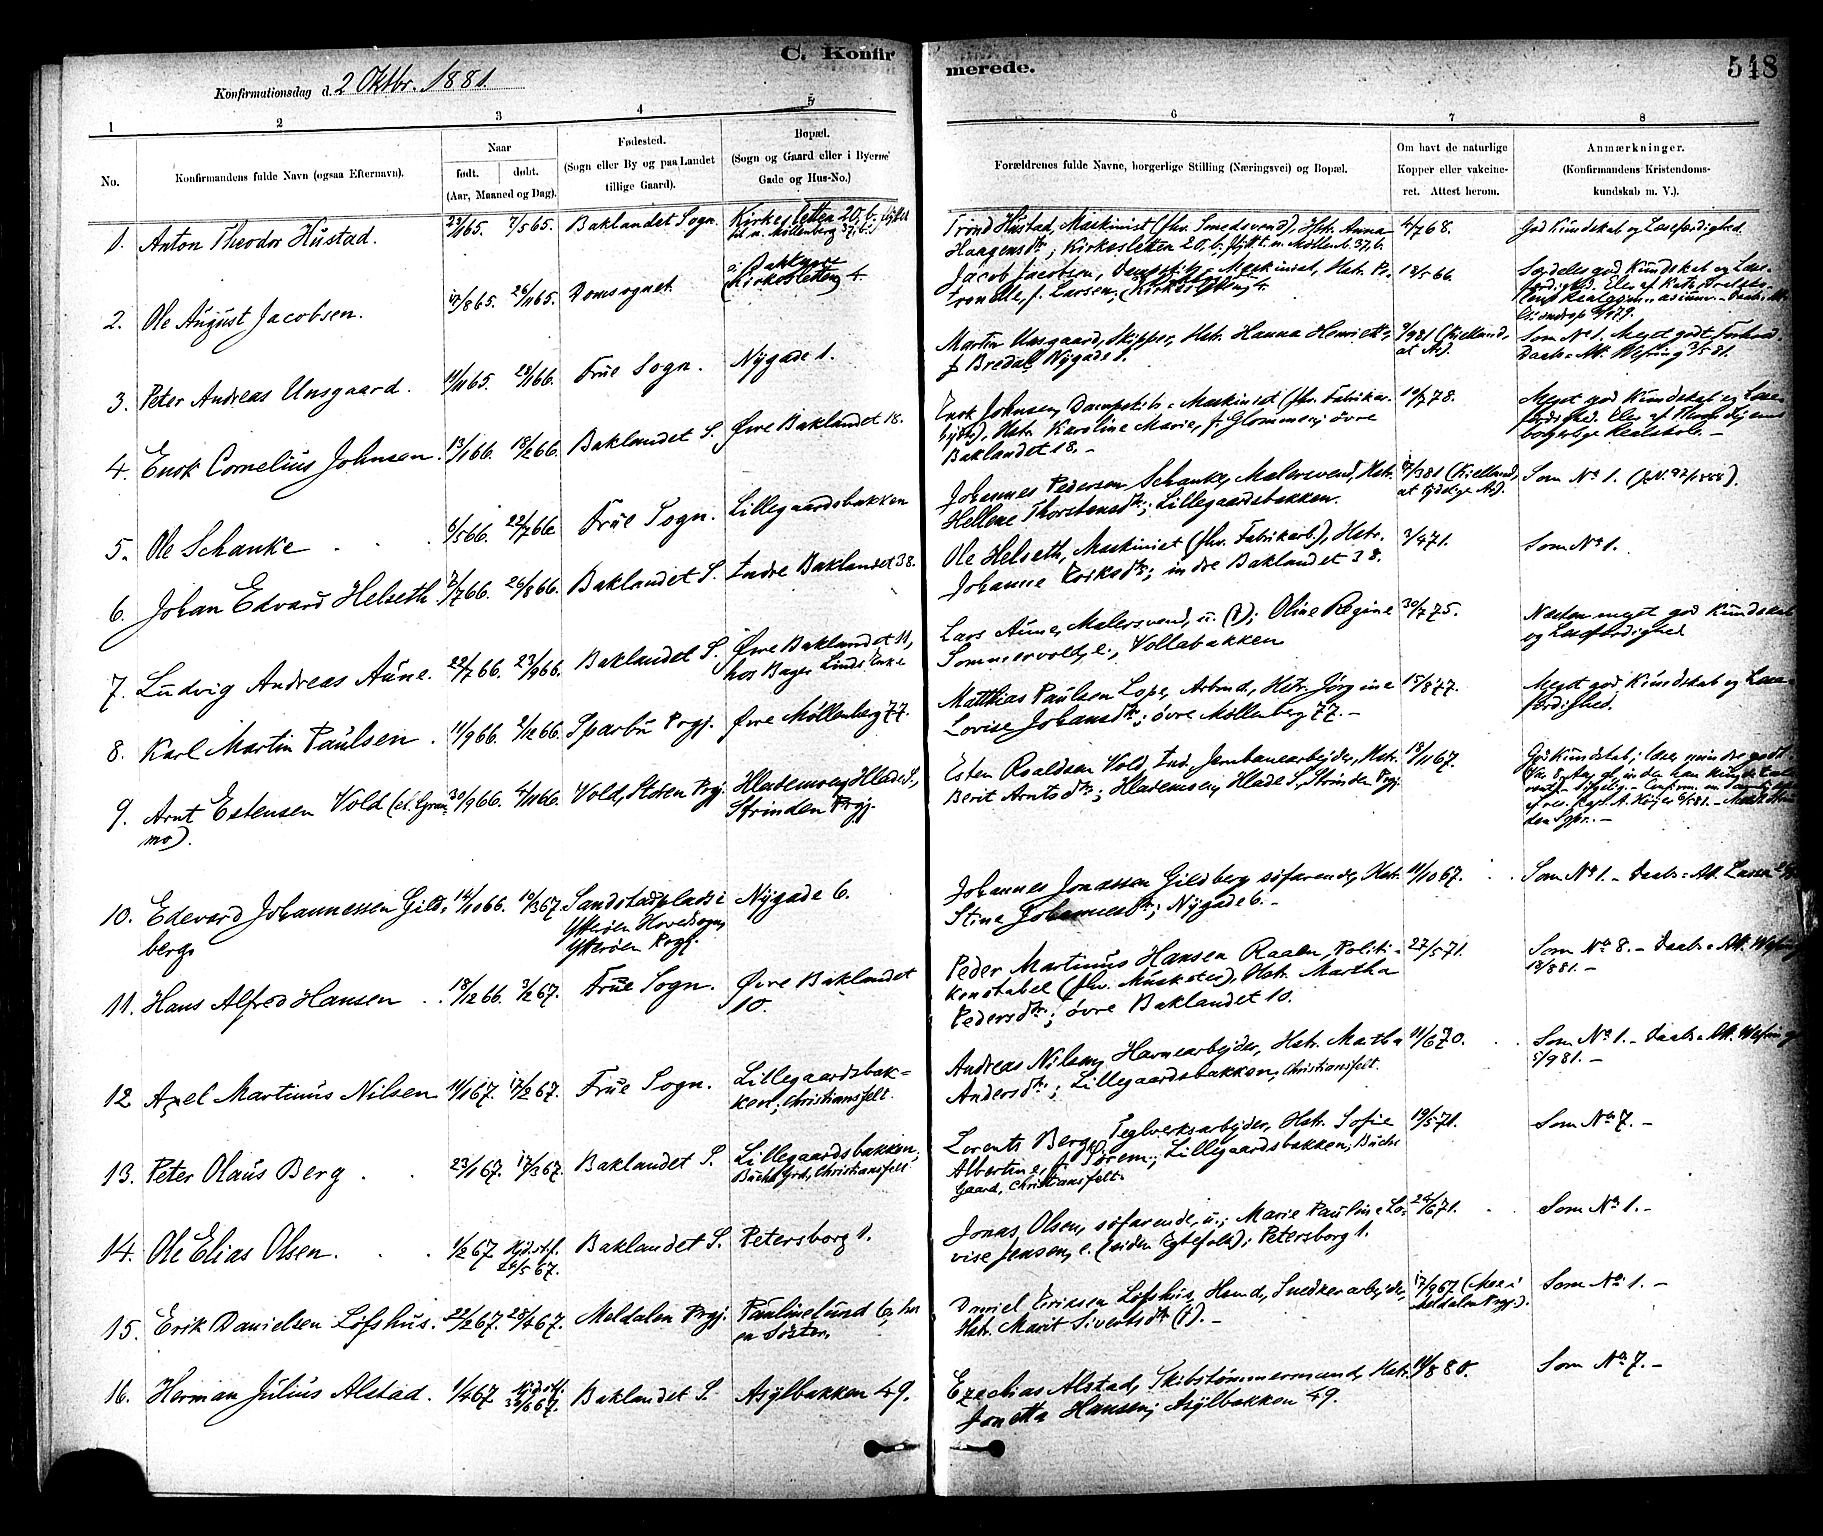 C. Konfirmerede.
548
Konfirmationsdag d. 2 Oktbr. 1881.
1 2 3 4 5 6 7 8
No.
Konfirmandens fulde Navn (ogsaa Efternavn).
Naar
født. døbt.
(Aar, Maaned og Dag).
Fødested.
(Sogn eller By og paa Landet
tillige Gaard).
Bopæl.
(Sogn og Gaard eller i Byerne
Gade og Hus-No.)
Forældrenes fulde Navne, borgerlige Stilling (Næringsvei) og Bopæl.
Om havt de naturlige
Kopper eller vakcine-
ret. Attest herom.
Anmærkninger.
(Konfirmandens Kristendoms-
kundskab m. V.)
1. Anton Theodor Hustad. 23/1 65. 7/5 65. Baklandet Sogn. Kirkesletten 20, b.
Trond Hustad, Maskinist (fhv. Smedsvend), Hstr. Anna 4/7 68. God Kundskab og Læsefærdighed.
Haagensdtr; Kirkesletten 20, b.
2. Ole August Jacobsen. 17/8 65. 26/11 65. Domsognet. Bakkegr.
Kirkesletten 4
Jacob Jacobsen, Maskinist, Hstr. 13/5 66. Særdeles god Kundskab og Læse-
f. Larsen; færdighed. Elev af
3. Peter Andreas Unsgaard. 11/11 65. 28/1 66. Frue Sogn. Nygade 1.
Martin Unsgaard, Skipper, Hstr. Hanna Henriette, (Kjelland, Som No 1. Meget godt Forhold.
f. Bredal, Nygade 1. at Ar). Daabs-Att.
4. Enok Cornelius Johnsen. 13/1 66. 18/2 66. Baklandet S. Øvre Baklandet 18.
Enok Johnsen, Dampskibs-Maskinist (fhv. Fabrikar- 10/7 78. Meget god Kundskab og Læse-
Hstr. Karoline Marie, f. Glommen; øvre færdighed. Elev af Throndhjems
Baklandet 18. - borgerlige Realskole. -
5. Ole Schanke 6/5 66. 22/7 66. Frue Sogn. Lillegaardsbakken
Johannes Pedersen Schanke, Malersvend, Hstr. 17/3 81 (Kjelland, Som No 1.
Hellene Thorstensdtr; Lillegaardsbakken.
6. Johan Edvard Helseth. 2/7 66. 26/8 66. Baklandet S. Indre Baklandet 38.
Ole Helseth, Maskinist (fhv. Fabrikarb.), Hstr. 3/4 71. Som No 1.
Johanne indre Baklandet 38.
7. Ludvig Andreas Aune. 22/7 66. 23/9 66. Baklandet S. Øvre Baklandet 11,
hos Bager Linds Enke
Lars Aune, Malersvend, u. (†); Oline Regine 30/7 75. Næsten meget god Kundskab
Sommervold, e., Vollabakken og Læsefærdighed
8. Karl Martin Paulsen. 11/9 66. 2/12 66. Sparbu Prgj. Øvre Møllenberg 77.
Matthias Paulsen Lope, Arbmd, Hstr. Jørgine 15/8 77. Meget god Kundskab og Læse-
Lovise Johansdtr; øvre Møllenberg 77. - færdighed.
9. Arnt Estensen Vold (el. Gran- 30/9 66. 4/11 66. Vold, Støren Prgj. Hlademoen, Hlade S.,
mo). Strinden Prgj.
Esten Roaldsen Vold, Ind., Jernbanearbejder, Hstr. 13/11 67. God Kundskab; læser mindre godt.
Berit Arntsdtr; Hlademoen, Hlade S., Strinden Prgj.
10. Edevard Johannessen Gild- 14/10 66. 10/3 67. Sandstadplads i Nygade 6.
berg. Ytterøen Hovedsogn,
Ytterøen Prgj.
Johannes Jonassen Gildberg, søfarende, Hstr. 11/10 67. Som No 1. - Daabs-Att.
Stine Johannesdtr; Nygade 6. -
11. Hans Alfred Hansen 18/12 66. 3/2 67. Frue Sogn. Øvre Baklandet
10.
Peder Martinus Hansen Raaen, Politi- 27/5 71. Som No 8. - Daabs-Att.
konstabel (fhv. Musketer), Hstr. Martha 13/8 81. -
Pedersdtr; øvre Baklandet 10.
12 Axel Martinus Nilsen 11/1 67. 17/2 67. Frue Sogn. Lillegaardsbak-
ken; Christiansfelt.
Andreas Nilsen, Havnearbejder, Hstr. Martha 11/6 70. Som No 1. - Daabs-Att.
Andersdtr; Lillegaardsbakken, Christiansfelt. 5/9 81. -
13. Peter Olaus Berg 23/1 67. 17/3 67. Baklandet S. Lillegaardsbakken,
Buchs Grd, Christiansfelt
Lorents Berg, Teglverksarbejder, Hstr. Sofie 19/5 71. Som No 7. -
Albertine, f. Sørem; Lillegaardsbakken, Buchs
Gaard, Christiansfelt.
14. Ole Elias Olsen. 1/2 67 Hjdst. Baklandet S. Petersborg 1.
26/5 67.
Jonas Olsen, søfarende, u.; Marie Pauline Lo- 24/6 71. Som No 1. -
vise Jensen, e. (siden Egtefolk); Petersborg 1.
15. Erik Danielsen Lofshus. 22/2 67. 28/4 67. Meldalen Prgj. Paulinelund 6, hos
en Søster.
Daniel Eriksen Lofshus, Hsmd, Snedkerarbejder, 17/9 67 (Moe i Som No 1. -
Hstr. Marit Sivertsdtr (†). - Meldalen Prgj.).
16. Herman Julius Alstad. 1/4 67 Hjdst. Baklandet S. Asylbakken 49.
Ezechias Alstad, Skibstømmermand, Hstr. 11/8 80. Som No 7. -
Jonetta Hansen; Asylbakken 49.